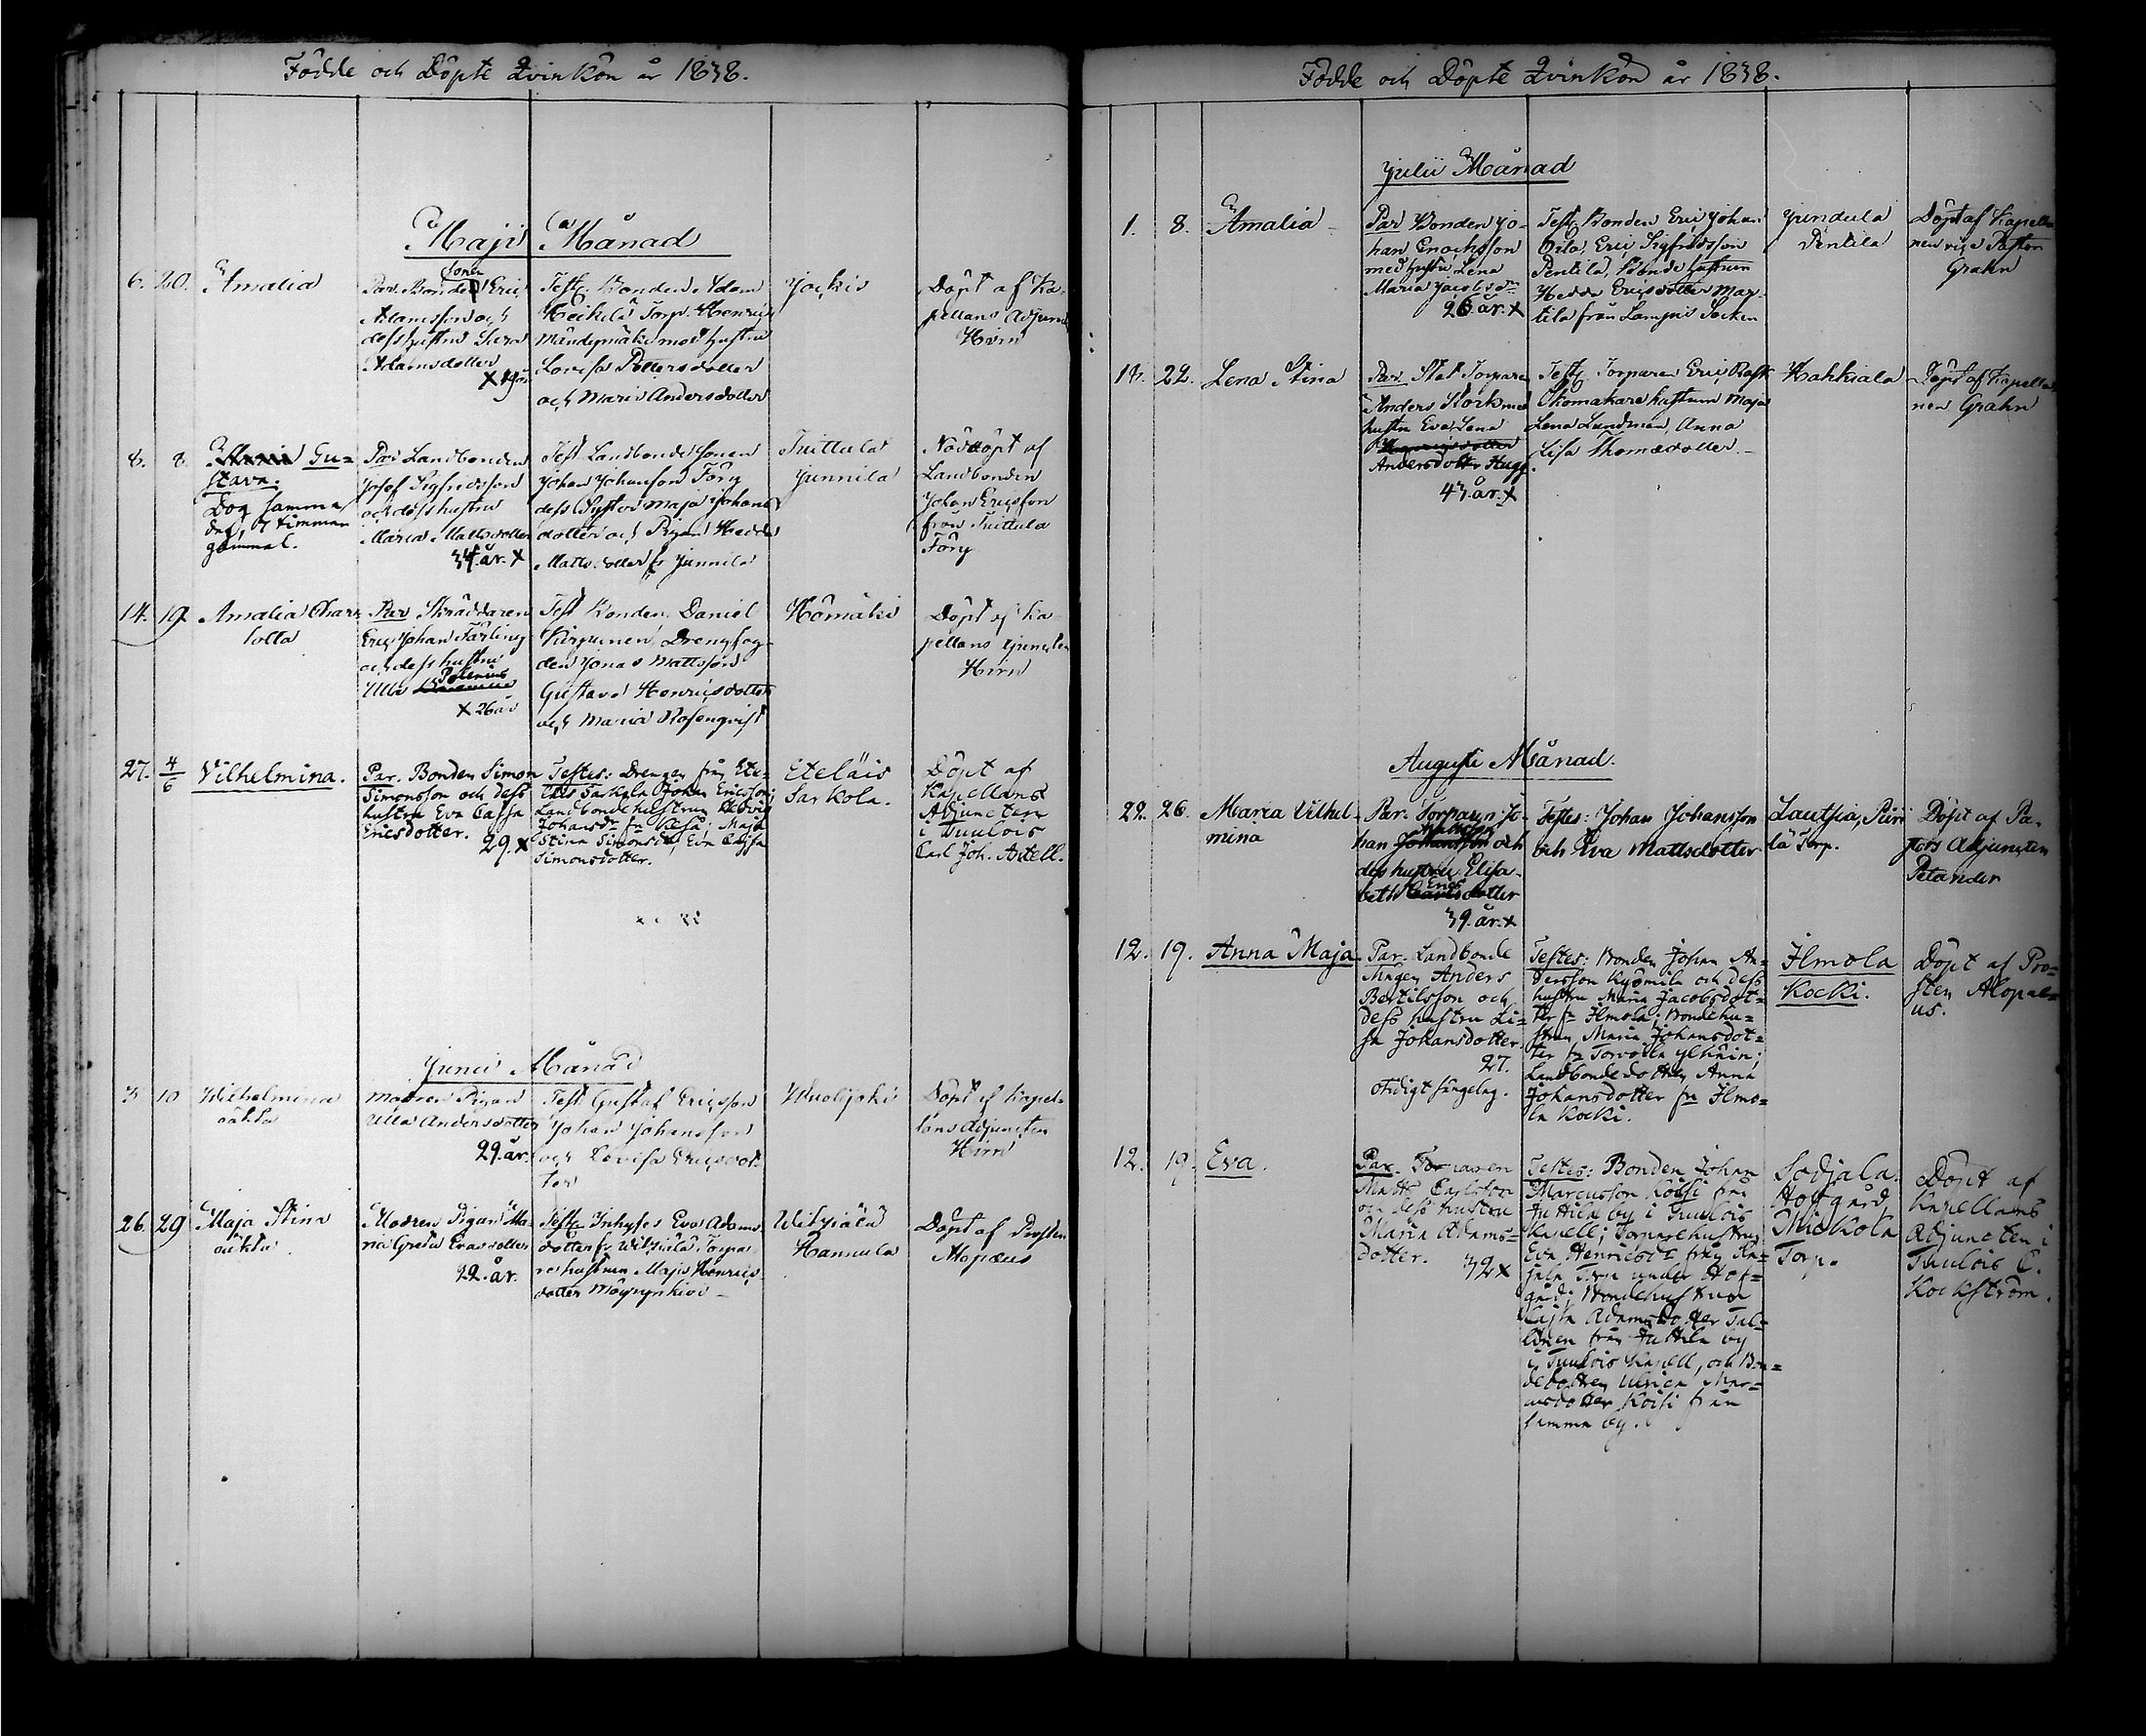 Födde och Döpte Qvinkön år 1838.
Maji Månad
6. 20. Amalia
Par. Bonde Sonen Eric
Adamsson och
dess hustru
Adamsdotter
Test. Bonden Adam
Heikilä Torp. Henric
med hustru
Lovisa Pettersdotter
och Maria Andersdotter
Jockis
Döpt af Ka-
pellans Adjunct
Hirn
8. 8 Gu-
stava.
Dog samma
dag, 7 timmar
gammal.
Par Landbonden
Josef Sigfredsson
och dess hustru
Maria Mattsdotter
34. år. x
Test Landbondesonen
Johan Johansson Töry
dess Syster Maja Johans
dotter och Pigan Hedda
Mattsdotter fr Junnila
Tuittula
Junnila
Nöddöpt af
Landbonden
Johan Ericsson
från Tuittula
Töry
14. 19 Amalia Char-
lotta
Par Skräddaren
Eric Johan Färling
och dess hustru
Ulla Polenius
x 26 år
Test Bonden Daniel
Kirpunen, Drengfog-
den Jonas Mattsson
Gustava Henricsdotter
och Maria Rosenqvist
Homäki
Döpt af Ka-
pellans Adjuncten
Hirn
27. 4/6 Vilhelmina.
Par. Bonden Simon
Simonsson och dess
hustru Eva Cajsa
Ericsdotter.
29. x
Testes: Drengen från Ete-
läis Sarkola Johan Ericsson;
Landbondehustrun Hedvig
Johansdr fr ; Maja
Stina Simonsdr, Eva Cajsa
Simonsdotter.
Eteläis
Sarkola.
Döpt af
Kapellans
Adjuncten
i Tuulois
Carl Joh. Axell.
Junii Månad
3 10 Wilhelmina
oäkta
Modren Pigan
Ulla Andersdotter
29. år.
Test Gustaf Ericsson
Johan Johansson
och Lovisa Ericsdot-
ter
Mustijoki
Döpt af Kapel-
lans Adjuncten
Hirn
26 29 Maja Stina
oäkta
Modren Pigan Ma-
ria Greta Evasdotter
22. år.
Test Inhyses Eva Adams
dotter fr Witsiälä Torpa-
rehustrun Maja Henrics
dotter
Witsiälä
Hannula
Döpt af Prosten
Alopæus
Födde och Döpte Qvinkön år 1838.
Julii Månad
1. 8. Amalia
Par Bonden Jo-
han Enochsson
med hustru Lena
Maria Jacobsdr
26. år. x
Test. Bonden Eric Johan
Oila, Eric Sigfredsson
Pentilä, Bondehustrun
Hedda Ericsdotter Mar-
tila från Lampis Socken
Jundula
Pentila
Döpt af Kapella-
nen vice Pastor
Grahn
18. 22. Lena Stina
Par. Stat Torparen
Anders Stork med
hustru Eva Lena
Andersdotter Hugg.
43. år. x
Test. Torparen Eric Rask
Skomakare hustrun Maja
Lena Lundman, Anna
Lisa Thomædotter.
Hahkiala
Döpt af Kapella-
nen Grahn
Augusti Månad.
22. 26. Maria Vilhel-
mina
Par. Torparen Jo-
han och
dess hustru Elisa-
beth Ericsdotter
39. år. x
Testes: Johan Johansson
och Eva Mattsdotter
Lautsia, Piri-
lä Torp.
Döpt af Pa-
stors Adjuncten
Petander
12. 19. Anna Maja
Par. Landbonde
Mågen Anders
Bertilsson och
dess hustru Li-
sa Johansdotter
27.
otidigt sängelag.
Testes: Bonden Johan An-
dersson Kyömilä och dess
hustru Maria Jacobsdot-
ter fr Ilmola; Bondehu-
strun Maria Johansdot-
ter fr Torvoila
Landbondedottren Anna
Johansdotter fr Ilmo-
la Kocki.
Ilmola
Kocki.
Döpt af Pro-
sten Alopæ-
us.
12. 19. Eva.
Par. Torparen
Matts Carlsson
och dess hustru
Maria Adams-
dotter. 32 x
Testes: Bonden Johan
Marcusson Köisi från
Juttila by i Tuulois
Kapell; Torparehustrun
Eva Henricsdr från
Torp under Hof-
gård; Bondehustrun
Cajsa Adamsdotter
från Juttila by
i Tuulois Kapell, och Bon-
dedottren Ulrica Mar-
cusdotter Köisi från
samma by.
Sodjala
Hofgård
Torp.
Döpt af
Kapellans
Adjuncten i
Tuulois C.
Kockström.